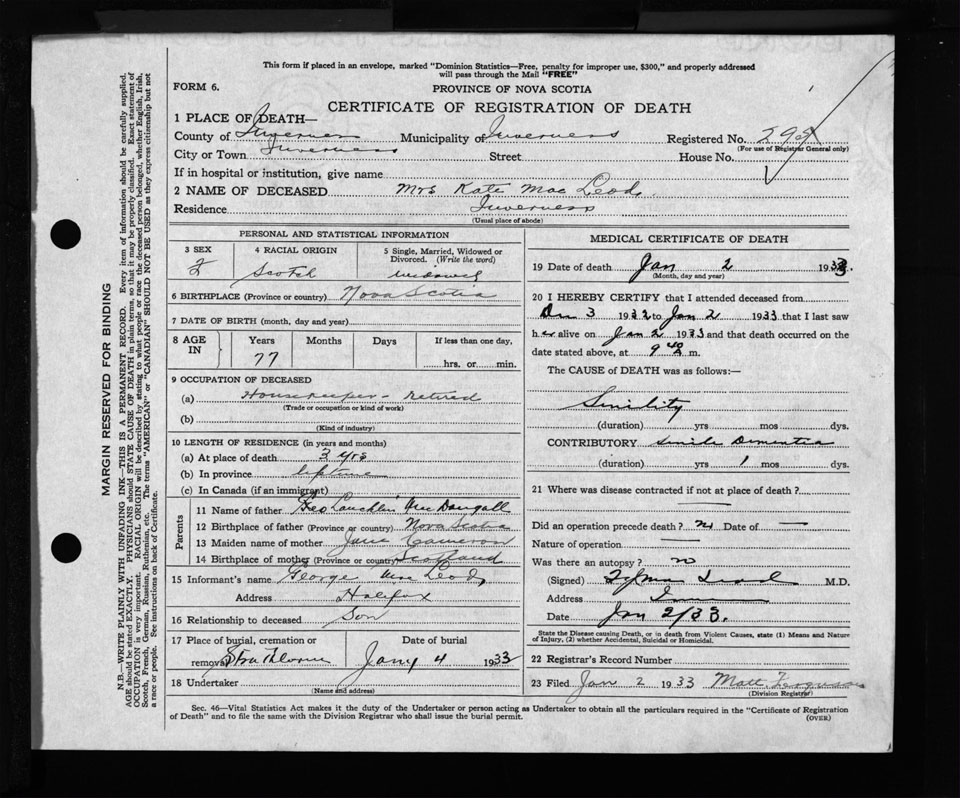 This form if placed in an envelope, marked "Dominion Statistics—Free, penalty for improper use, $300," and properly addressed
will pass through the Mail "FREE"
FORM 6.
PROVINCE OF NOVA SCOTIA
CERTIFICATE OF REGISTRATION OF DEATH
1 PLACE OF DEATH—
County of Inverness Municipality of Inverness Registered No.
(For use of Registrar General only)
City or Town Inverness Street House No.
If in hospital or institution, give name
2 NAME OF DECEASED Mrs Kate Mac Leod
Residence Inverness
(Usual place of abode)
PERSONAL AND STATISTICAL INFORMATION
3 SEX
4 RACIAL ORIGIN
5 Single, Married, Widowed or Divorced. (Write the word)
F Scotch widowed
6 BIRTHPLACE (Province or country) Nova Scotia
7 DATE OF BIRTH (month, day and year)
8 AGE IN Years Months Days If less than one day,
77 hrs. or min.
9 OCCUPATION OF DECEASED
(a) Housekeeper - retired
(Trade or occupation or kind of work)
(b)
(Kind of industry)
10 LENGTH OF RESIDENCE (in years and months)
(a) At place of death 3 yrs
(b) In province lifetime
(c) In Canada (if an immigrant)
Parents
11 Name of father Lauchlin MacDougall
12 Birthplace of father (Province or country) Nova Scotia
13 Maiden name of mother Jane Cameron
14 Birthplace of mother (Province or country) Scotland
15 Informant's name George Mac Leod
Address Halifax
16 Relationship to deceased Son
17 Place of burial, cremation or removal Strathlorne
Date of burial
Jany 4 1933
18 Undertaker
(Name and address)
MEDICAL CERTIFICATE OF DEATH
19 Date of death Jan 2 1933.
(Month, day and year)
20 I HEREBY CERTIFY that I attended deceased from
Dec 3 1932 to Jan 2 1933 that I last saw
her alive on Jan 2 1933 and that death occurred on the
date stated above, at 9 40 m.
The CAUSE of DEATH was as follows:—
Senility
(duration) yrs mos dys.
CONTRIBUTORY Senile Dementia
(duration) yrs 1 mos dys.
21 Where was disease contracted if not at place of death? —
Did an operation precede death? no Date of —
Nature of operation —
Was there an autopsy? no
(Signed) M.D.
Address
Date Jan 2/33.
State the Disease causing Death, or in death from Violent Causes, state (1) Means and Nature
of Injury, (2) whether Accidental, Suicidal or Homicidal.
22 Registrar's Record Number
23 Filed Jan 2 1933 Matt. Ferguson
(Division Registrar)
Sec. 46—Vital Statistics Act makes it the duty of the Undertaker or person acting as Undertaker to obtain all the particulars required in the "Certificate of Registration
of Death" and to file the same with the Division Registrar who shall issue the burial permit.
(OVER)
MARGIN RESERVED FOR BINDING
N.B.—WRITE PLAINLY WITH UNFADING INK—THIS IS A PERMANENT RECORD. Every item of information should be carefully supplied.
AGE should be stated EXACTLY. PHYSICIANS should STATE CAUSE OF DEATH in plain terms, so that it may be properly classified. Exact statement of
OCCUPATION is very important. RACIAL ORIGIN will be described by stating to what people or race the deceased person belonged, whether English, Irish,
Scotch, French, German, Russian, Ruthenian, etc. The terms "AMERICAN" or "CANADIAN" SHOULD NOT BE USED as they express citizenship but not
a race or people. See instructions on back of Certificate.